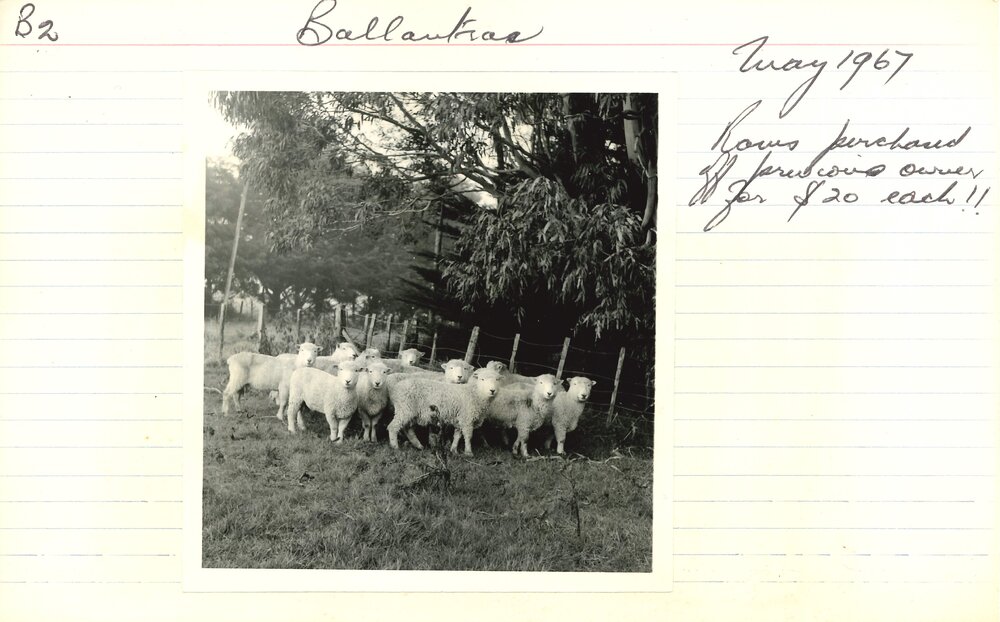 B2
Ballantrae
May 1967
Rams purchased
off previous owner
for $20 each!!